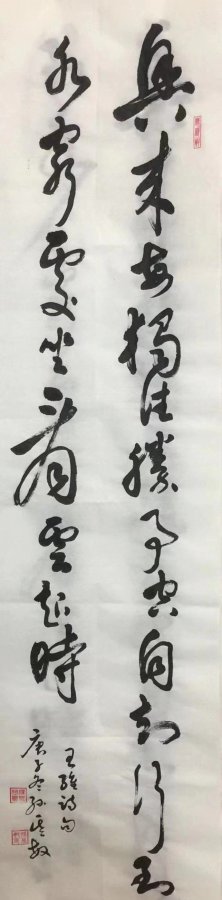 興來每獨往勝事空自知行到
水窮處坐看雲起時
王維詩句
庚子冬孫